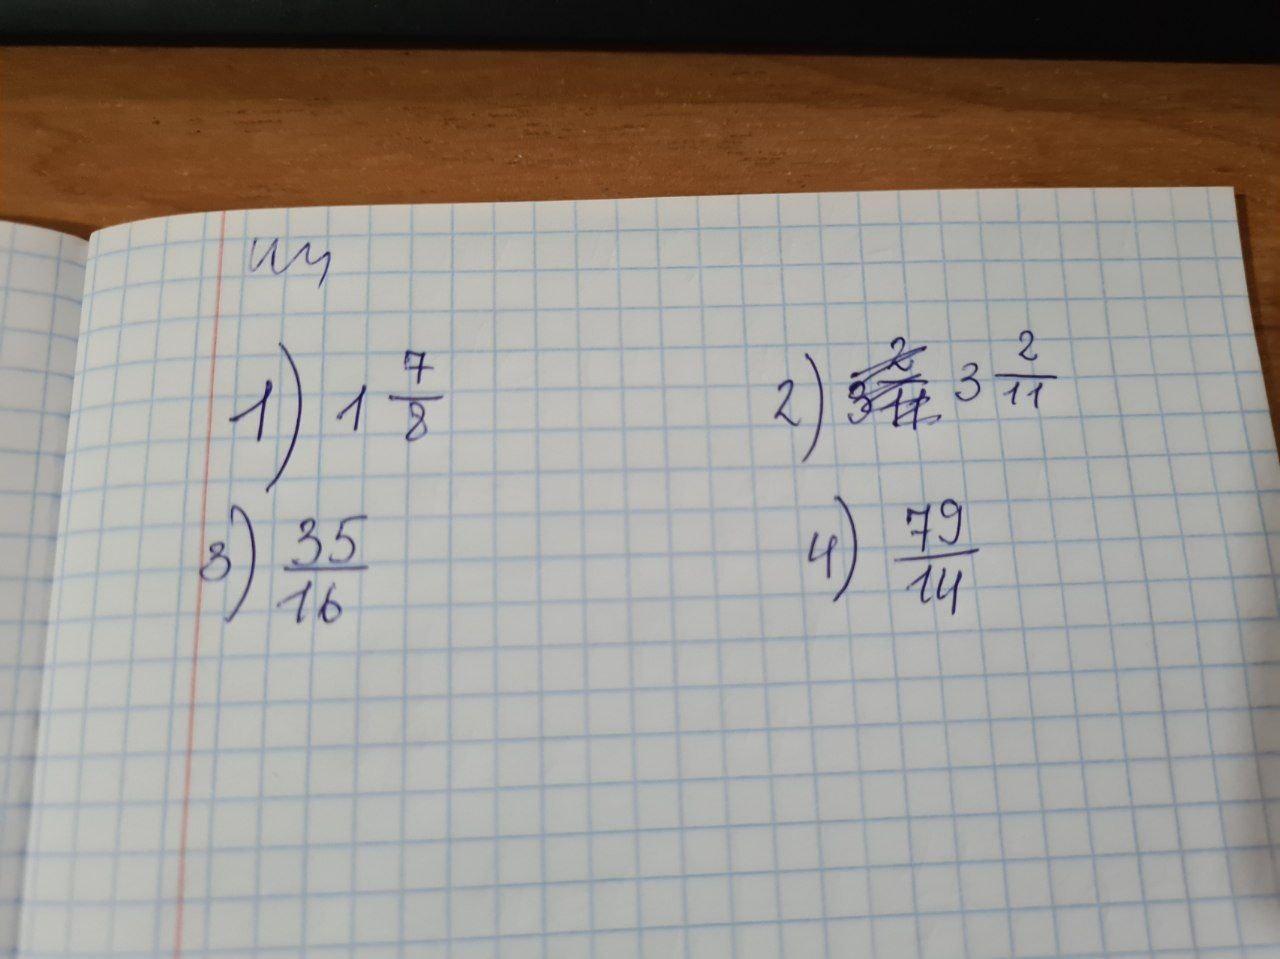 1) 1 7/8 2) 3 2/11
3) 35/16 4) 79/14